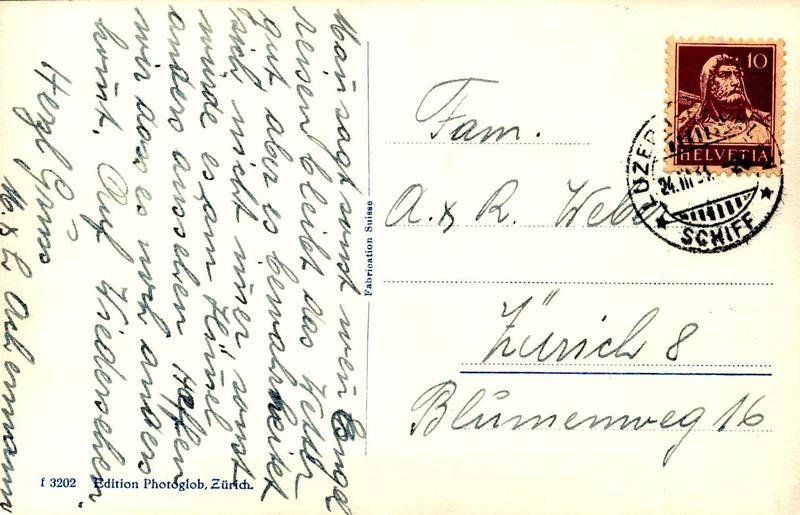 Man sagt sonst wen Engel
reisen bleibt das Wetter
gut aber es bewahrheitet
sich nicht imer sonst
würde es am Himel
anders aussehen. Hoffen
wir dass es noch anders
komt. Auf Wiedersehen.
Herzl Gruss
M. & E. Ackermann
f 3202 Edition Photoglob, Zürich.
Fabrication Suisse
10
HELVETIA
LUZERN
24.III.31.
SCHIFF
Fam.
A. & R. Weber
Zürich 8
Blumenweg 16